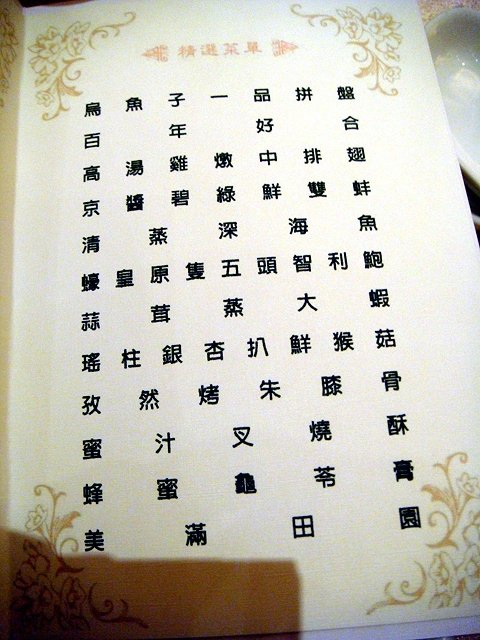 精選菜單
烏魚子一品拼盤
百年好合
高湯雞燉中排翅
京醬碧綠鮮雙蚌
清蒸深海魚
蠔皇原隻五頭智利鮑
蒜茸蒸大蝦
瑤柱銀杏扒鮮猴菇
孜然烤朱膝骨
蜜汁叉燒酥
蜂蜜龜苓膏
美滿田園